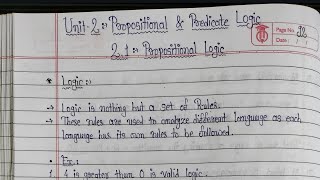 Unit-2 :- Propositional & Predicate Logic
Page No. 22
Date :
2.1 :- Propositional Logic
* Logic :-
→ Logic is nothing but a set of Rules.
→ These rules are used to analyze different language as each
language has its own rules to be followed.
* Ex :-
1. 4 is greater than 0 is valid logic.